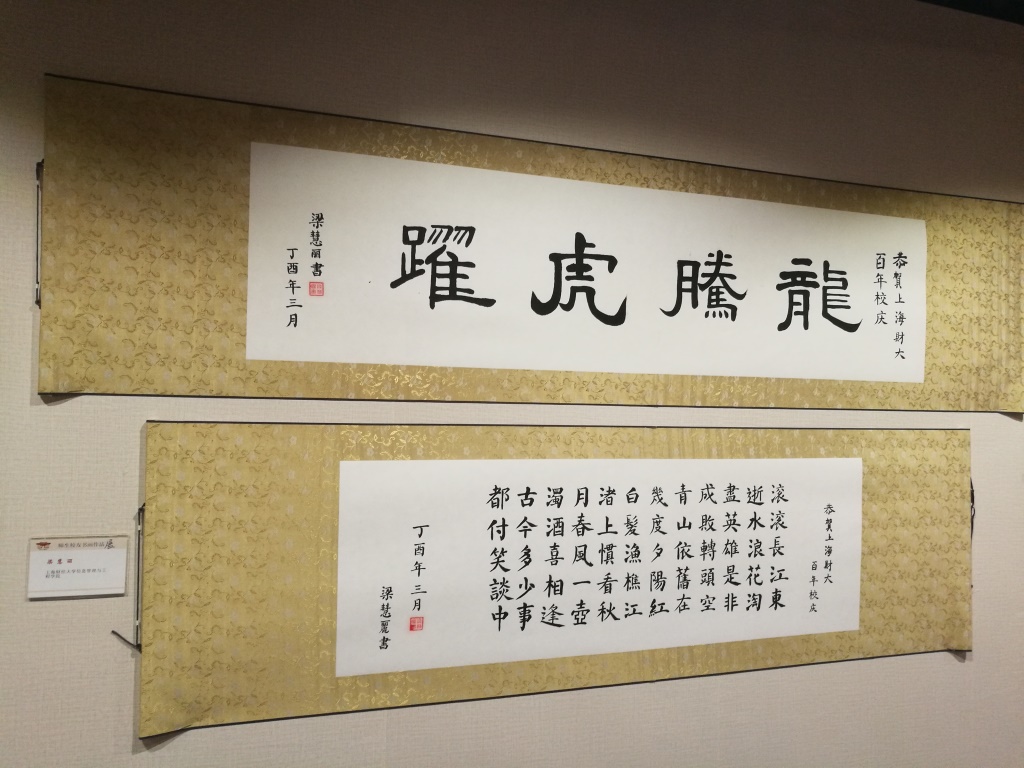 恭賀上海財大
百年校庆
龍騰虎躍
梁慧丽書
丁酉年三月
恭賀上海財大
百年校庆
滚滚長江東
逝水浪花淘
盡英雄是非
成敗轉頭空
青山依舊在
幾度夕陽紅
白髮漁樵江
渚上慣看秋
月春風一壺
濁酒喜相逢
古今多少事
都付笑談中
丁酉年三月
梁慧麗書